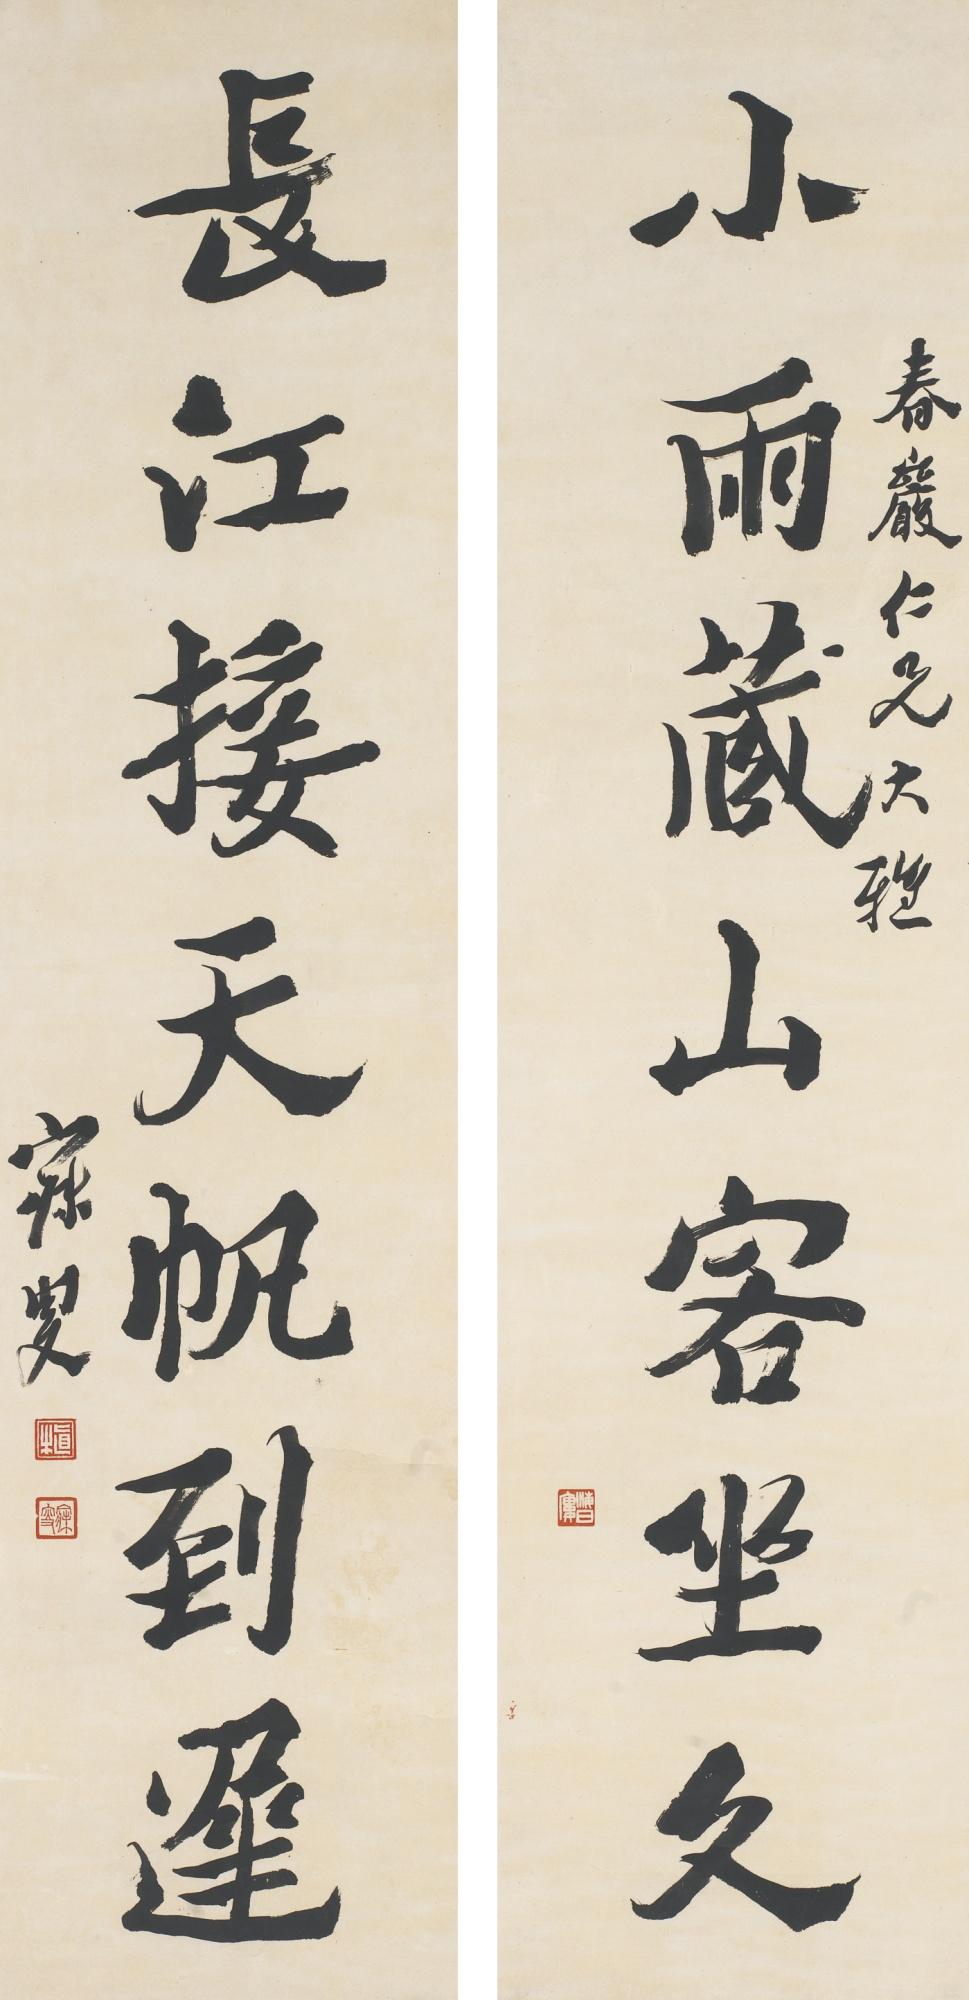 春巖仁兄大雅
小雨藏山客坐久
長江接天帆到遲
寐叟
海日
樓
植
寐叟